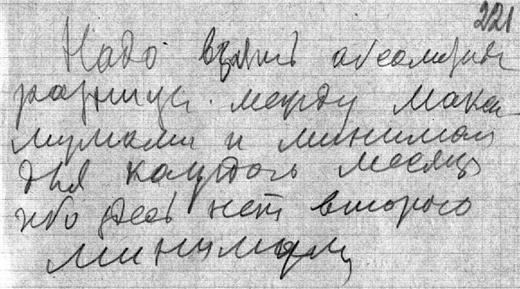 221
Надо взять абсолютн
разницу между макси
мумами и минимал
для каждого месяца
ибо здесь нет второго
минимума